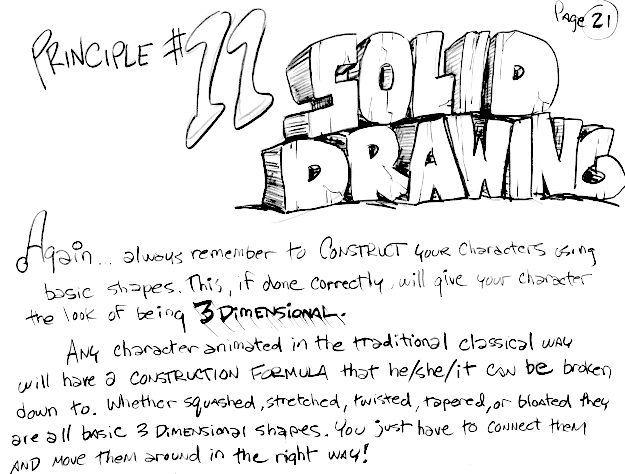 Page 21
PRINCIPLE #11
SOLID
DRAWING
Again... always remember to CONSTRUCT your characters using
basic shapes. This, if done correctly, will give your character
the look of being 3 DIMENSIONAL.
ANY character animated in the traditional classical WAY
will have a CONSTRUCTION FORMULA that he/she/it CAN be broken
down to. Whether squashed, stretched, twisted, tapered, or bloated they
are all basic 3 Dimensional shapes. You just have to connect them
AND move them around in the right way!